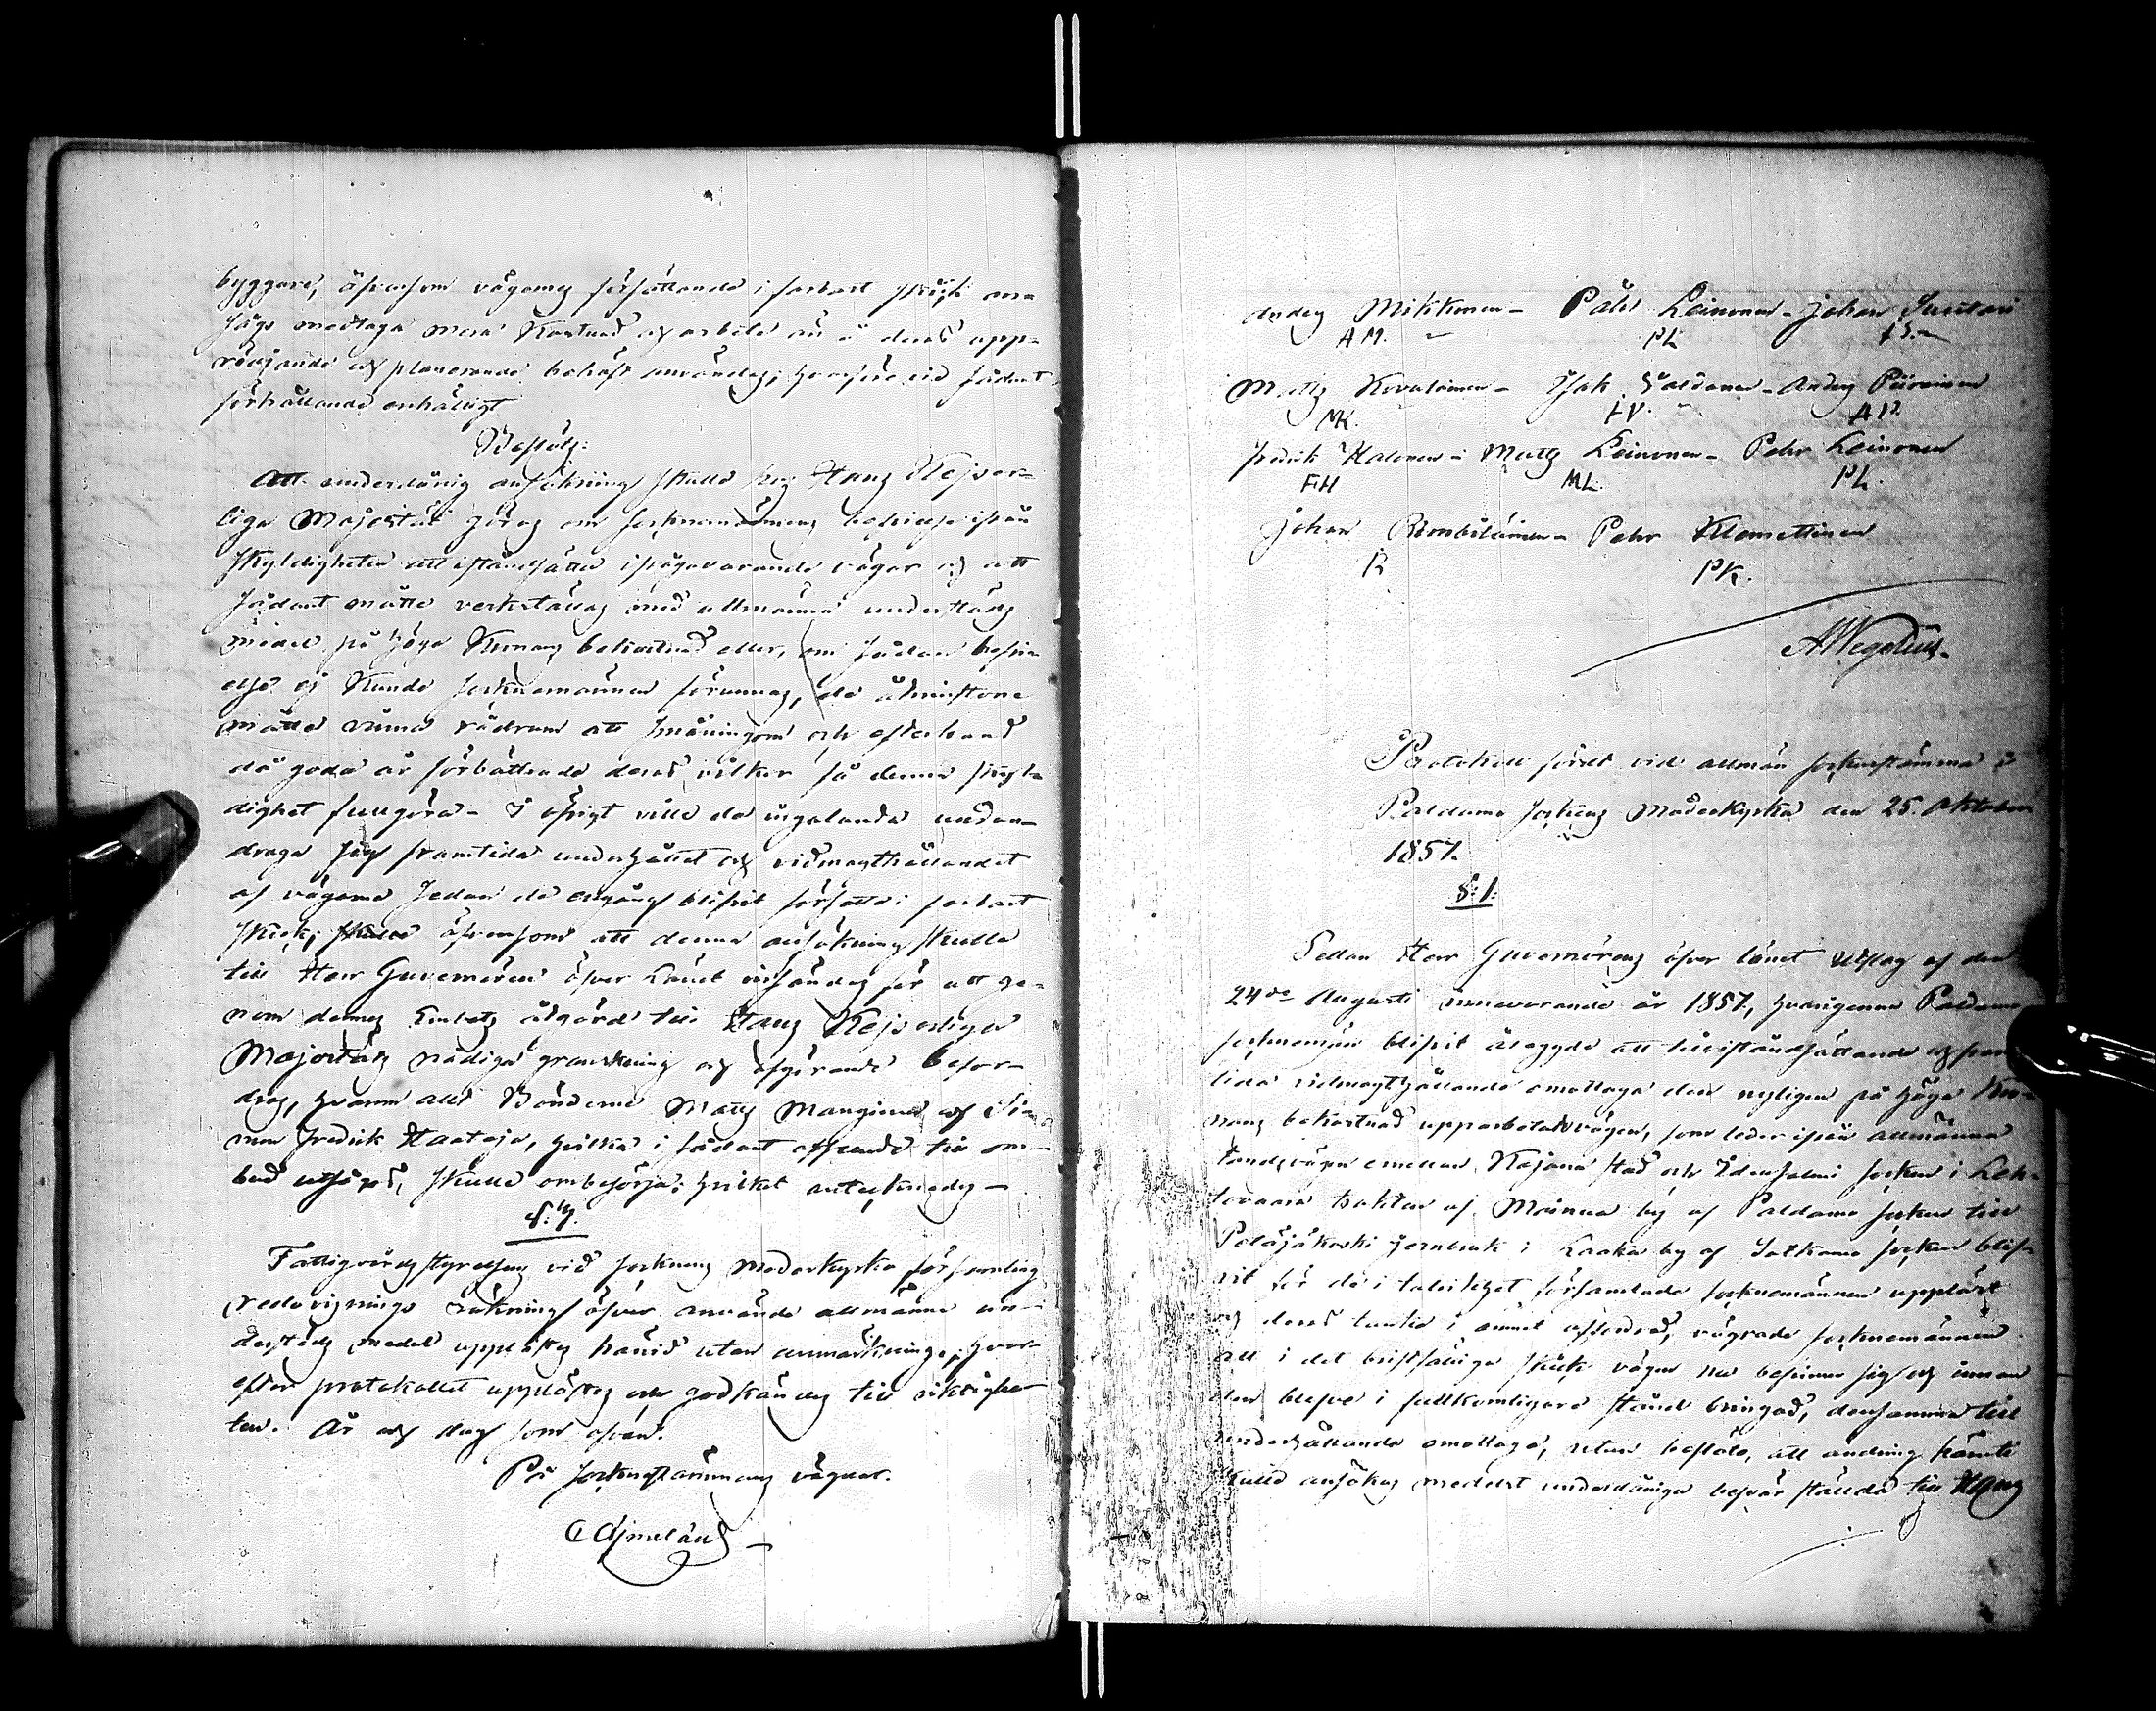 byggare, äfvensom vägarnes försättande i farbart skick an-
sågs medtaga mera kostnad och arbete än å deras upp-
röjande och planerande behöft användas; hvarföre vid sådant
förhållande enhälligt
Beslöts:
Att underdånig ansökning skulle hos Hans Kejser-
liga Majestät göras om sockenemännens befrielse ifrån
skyldigheten att iståndsätta ifrågavarande vägar och att
sådant måtte verkställas med allmänna understöds
medel på höga Kronans bekostnad eller, om sådan befri-
else ej kunde sockenemännen förunnas, de åtminstone
måtte vinna rådrum att småningom och efterhand
då goda år förbättrade deras vilkor få denna skyl-
dighet fullgöra - I öfrigt ville de ingalunda undan-
draga sig framtida underhållet och vidmagthållandet
af vägarna sedan de engång blifvit försatta i farbart
skick; äfvensom att denna ansökning skulle
till Herr Guvernören öfver Länet insändas för att ge-
nom dennes Embets åtgärd till Hans Kejserliga
Majestäts nådiga granskning och afgörande befor-
dras, hvarom allt Bönderne Matts Manginen och Si-
mon Fredrik Haataja, hvilka i sådant afseende till om-
bud utsågos, skulle ombesörja; hvilket antecknades -
§: 4.
Fattigvårdsstyrelsens vid sockenens Moderkyrko församling
redovisnings räkning öfver använde allmänna un-
derstöds medel upplästes härvid utan anmärkning; hvar-
efter protokollet upplästes och godkändes till riktighe-
ten. År och dag som ofvan.
På sockenstämmans vägnar.
C Ajmelæus
Anders Mikkonen - Påhl Leinonen - Johan Suutari
AM. PL JS.
Matts Kovalainen - Isak Väldonen - Anders Piirainen
MK. IV. AP.
Fredrik Halonen - Matts Leinonen - Pehr Leinonen
FH ML. PL.
Johan Rimbiläinen - Pehr Klemettinen
R PK.
A Wegelius.
Protokoll fördt vid allmän sockenstämma i
Paldamo Sockens Moderkyrka den 25. Oktober
1857.
§: 1:
Sedan Herr Guvernörens öfver länet Utslag af den
24de Augusti innevarande år 1857, hvarigenom Paldamo
sockenemän blifvit ålagde att till iståndsättande och fram-
tida vidmagthållande emottaga den nyligen på höga Kro-
nans bekostnad upparbetade vägen, som leder ifrån allmänna
landsvägen emellan Kajana stad och Idensalmi socken i Leh-
tovaara trakten af Mainua by af Paldamo socken till
Petäjäkoski jernbruk i Laaka by af Sotkamo socken blif-
vit för de i talrikhet församlade sockenemännen uppläst
och deras tanke i ämnet affordrad, vägrade sockenemännen
att i det bristfälliga skick vägen nu befinner sig och innan
den blefve i fullkomligare stånd bringad, densamma till
underhållande emottaga, utan beslöto, att ändring häruti
skulle ansökas medelst underdåniga besvär ställda till Hans